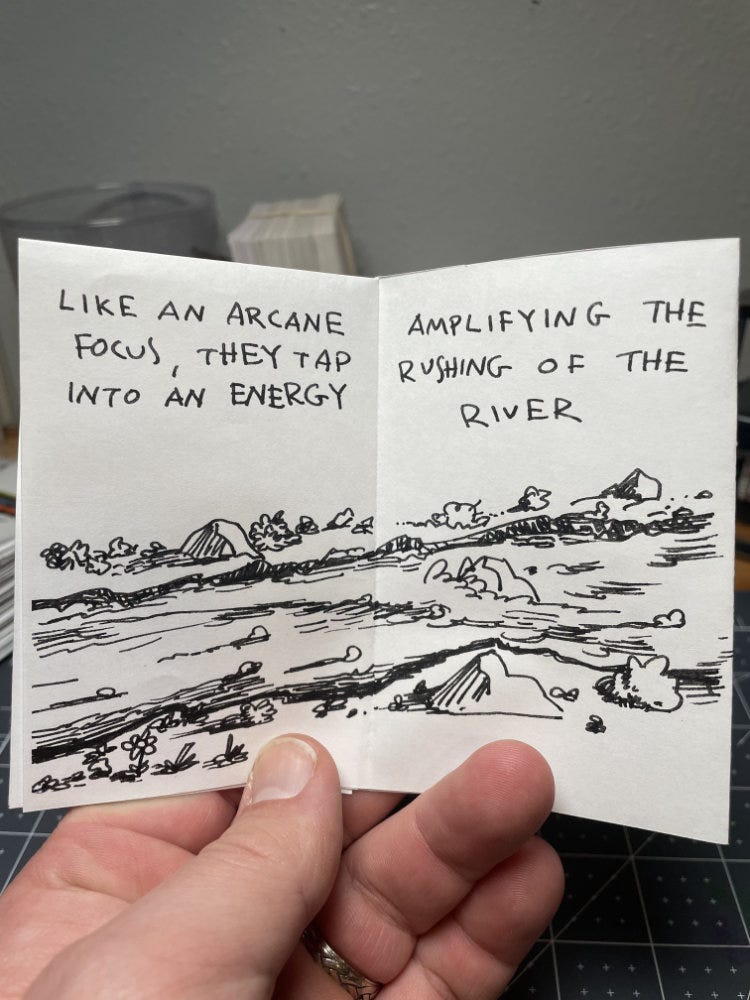 LIKE AN ARCANE
FOCUS, THEY TAP
INTO AN ENERGY
AMPLIFYING THE
RUSHING OF THE
RIVER